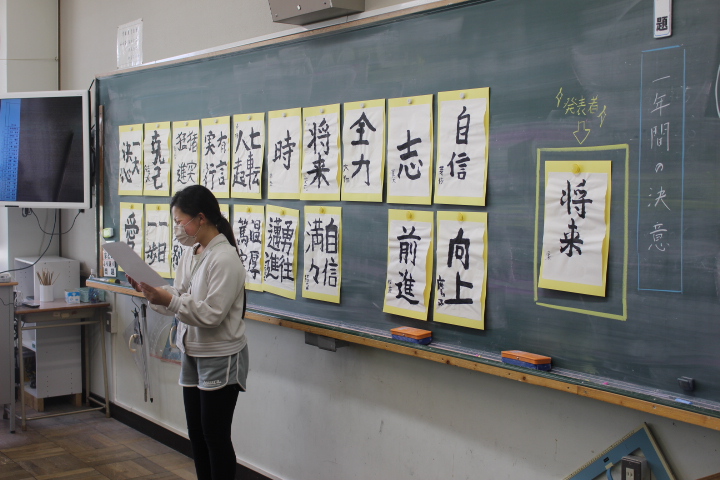 題
一年間の決意
発表者
将来
自信
志
全力
将来
時
七転
八起
有言
実行
猪突
猛進
克己
一大
決心
向上
前進
自信
満々
勇往
邁進
温厚
篤実
愛